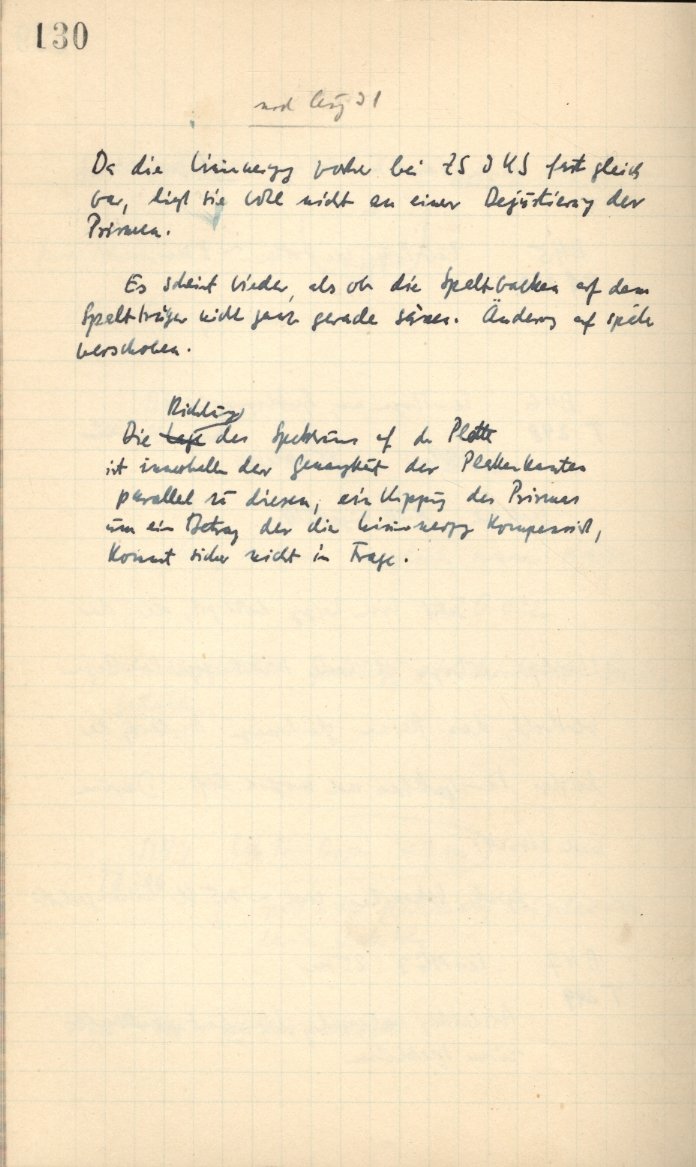 130
Da die Linienneigg vorher bei ZS u KS fast gleich
war, liegt sie wohl nicht an einer Dejustierung der
Prismen.
Es scheint wieder, als ob die Spaltbacken auf dem
Spaltträger nicht ganz gerade wären. Änderg auf später
verschoben.
Richtung
Die Lage des Spektrums auf der Platte
ist innerhalb der Genauigkeit der Plattenkanten
parallel zu diesen, ein Kippung des Prismas
um ein Betrag der die Linienneigg kompensiert,
kommt sicher nicht in Frage.